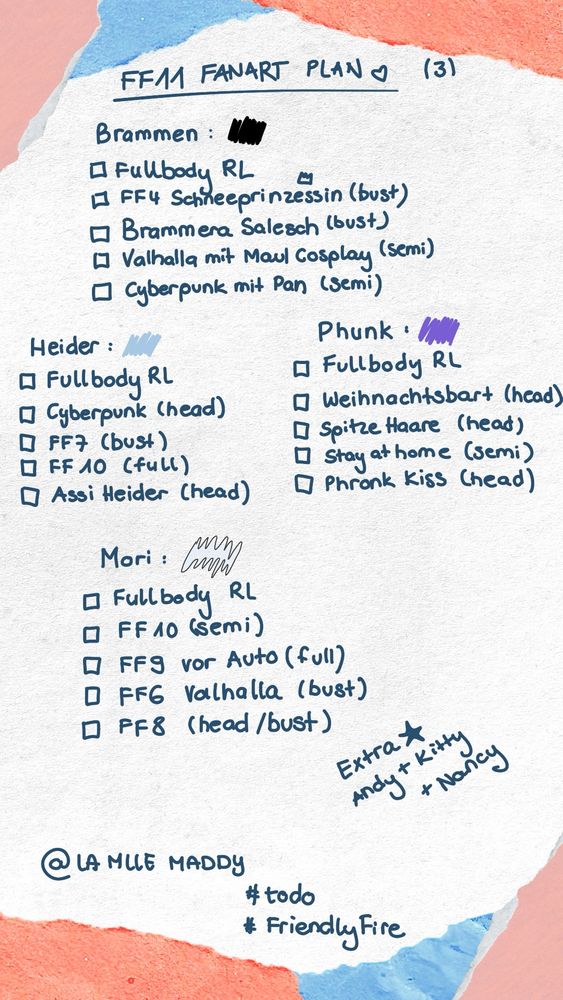 FF11 FANART PLAN ♡ (3)
Brammen :
☐ Fullbody RL
☐ FF4 Schneeprinzessin (bust)
☐ Brammera Salesch (bust)
☐ Valhalla mit Maul Cosplay (semi)
☐ Cyberpunk mit Pan (semi)
Heider :
☐ Fullbody RL
☐ Cyberpunk (head)
☐ FF7 (bust)
☐ FF10 (full)
☐ Assi Heider (head)
Phunk :
☐ Fullbody RL
☐ Weihnachtsbart (head)
☐ Spitze Haare (head)
☐ Stay at home (semi)
☐ Phronk Kiss (head)
Mori :
☐ Fullbody RL
☐ FF10 (semi)
☐ FF9 vor Auto (full)
☐ FF6 Valhalla (bust)
☐ FF8 (head/bust)
Extra ★
Andy + Kitty
+ Nancy
@LA MLLE MADDY
#todo
# FriendlyFire